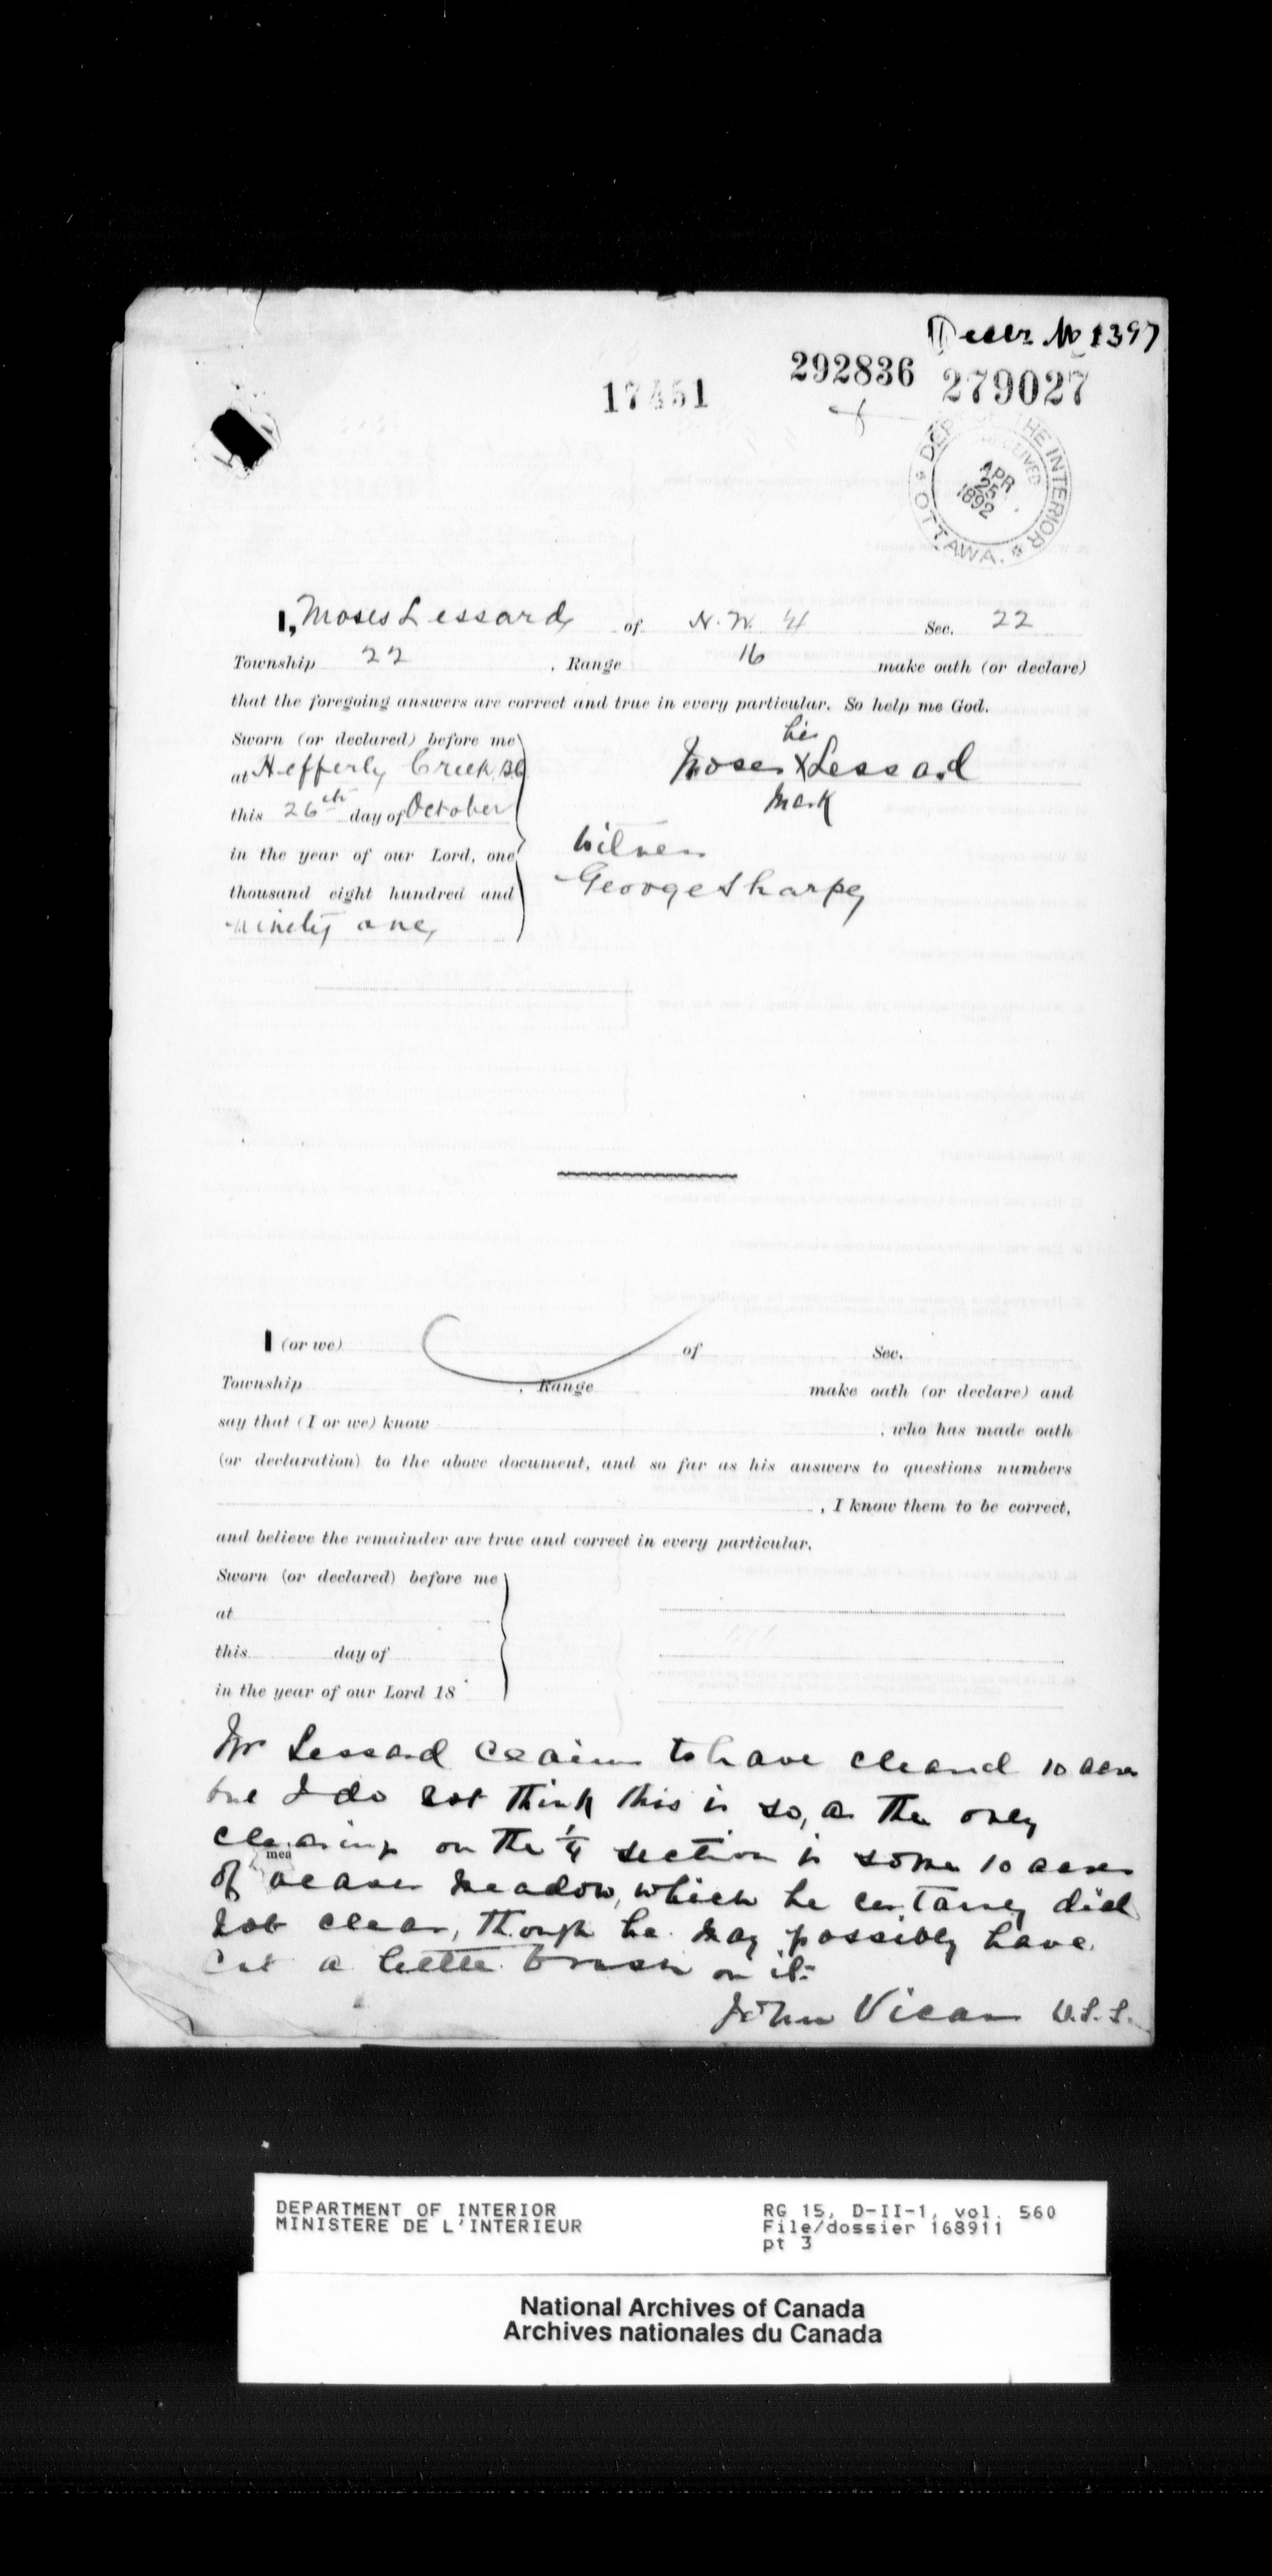 No 1397
17451
292836
279027
DEPT OF THE INTERIOR
RECEIVED
APR
25
1892
OTTAWA.
I, Moses Lessard of N.W. 4 Sec. 22
Township 22 , Range 16 make oath (or declare)
that the foregoing answers are correct and true in every particular. So help me God.
Sworn (or declared) before me
at Hefferly Creek, BC
this 26th day of October
in the year of our Lord, one
thousand eight hundred and
ninety one,
his
Moses X Lessard
Mark
Witness
George Sharpe
I (or we) of Sec.
Township , Range make oath (or declare) and
say that (I or we) know , who has made oath
(or declaration) to the above document, and so far as his answers to questions numbers
, I know them to be correct,
and believe the remainder are true and correct in every particular.
Sworn (or declared) before me
at
this day of
in the year of our Lord 18
Mr Lessard claims to have cleared 10 acres
but I do not think this is so, as the only
clearing on the 1/4 section is some 10 acres
mea
of beaver meadow, which he certainly did
not clear, though he may possibly have
cut a little brush on it.
John Vicars D.L.S.
DEPARTMENT OF INTERIOR
MINISTERE DE L'INTERIEUR
RG 15, D-II-1, vol. 560
File/dossier 168911
pt 3
National Archives of Canada
Archives nationales du Canada